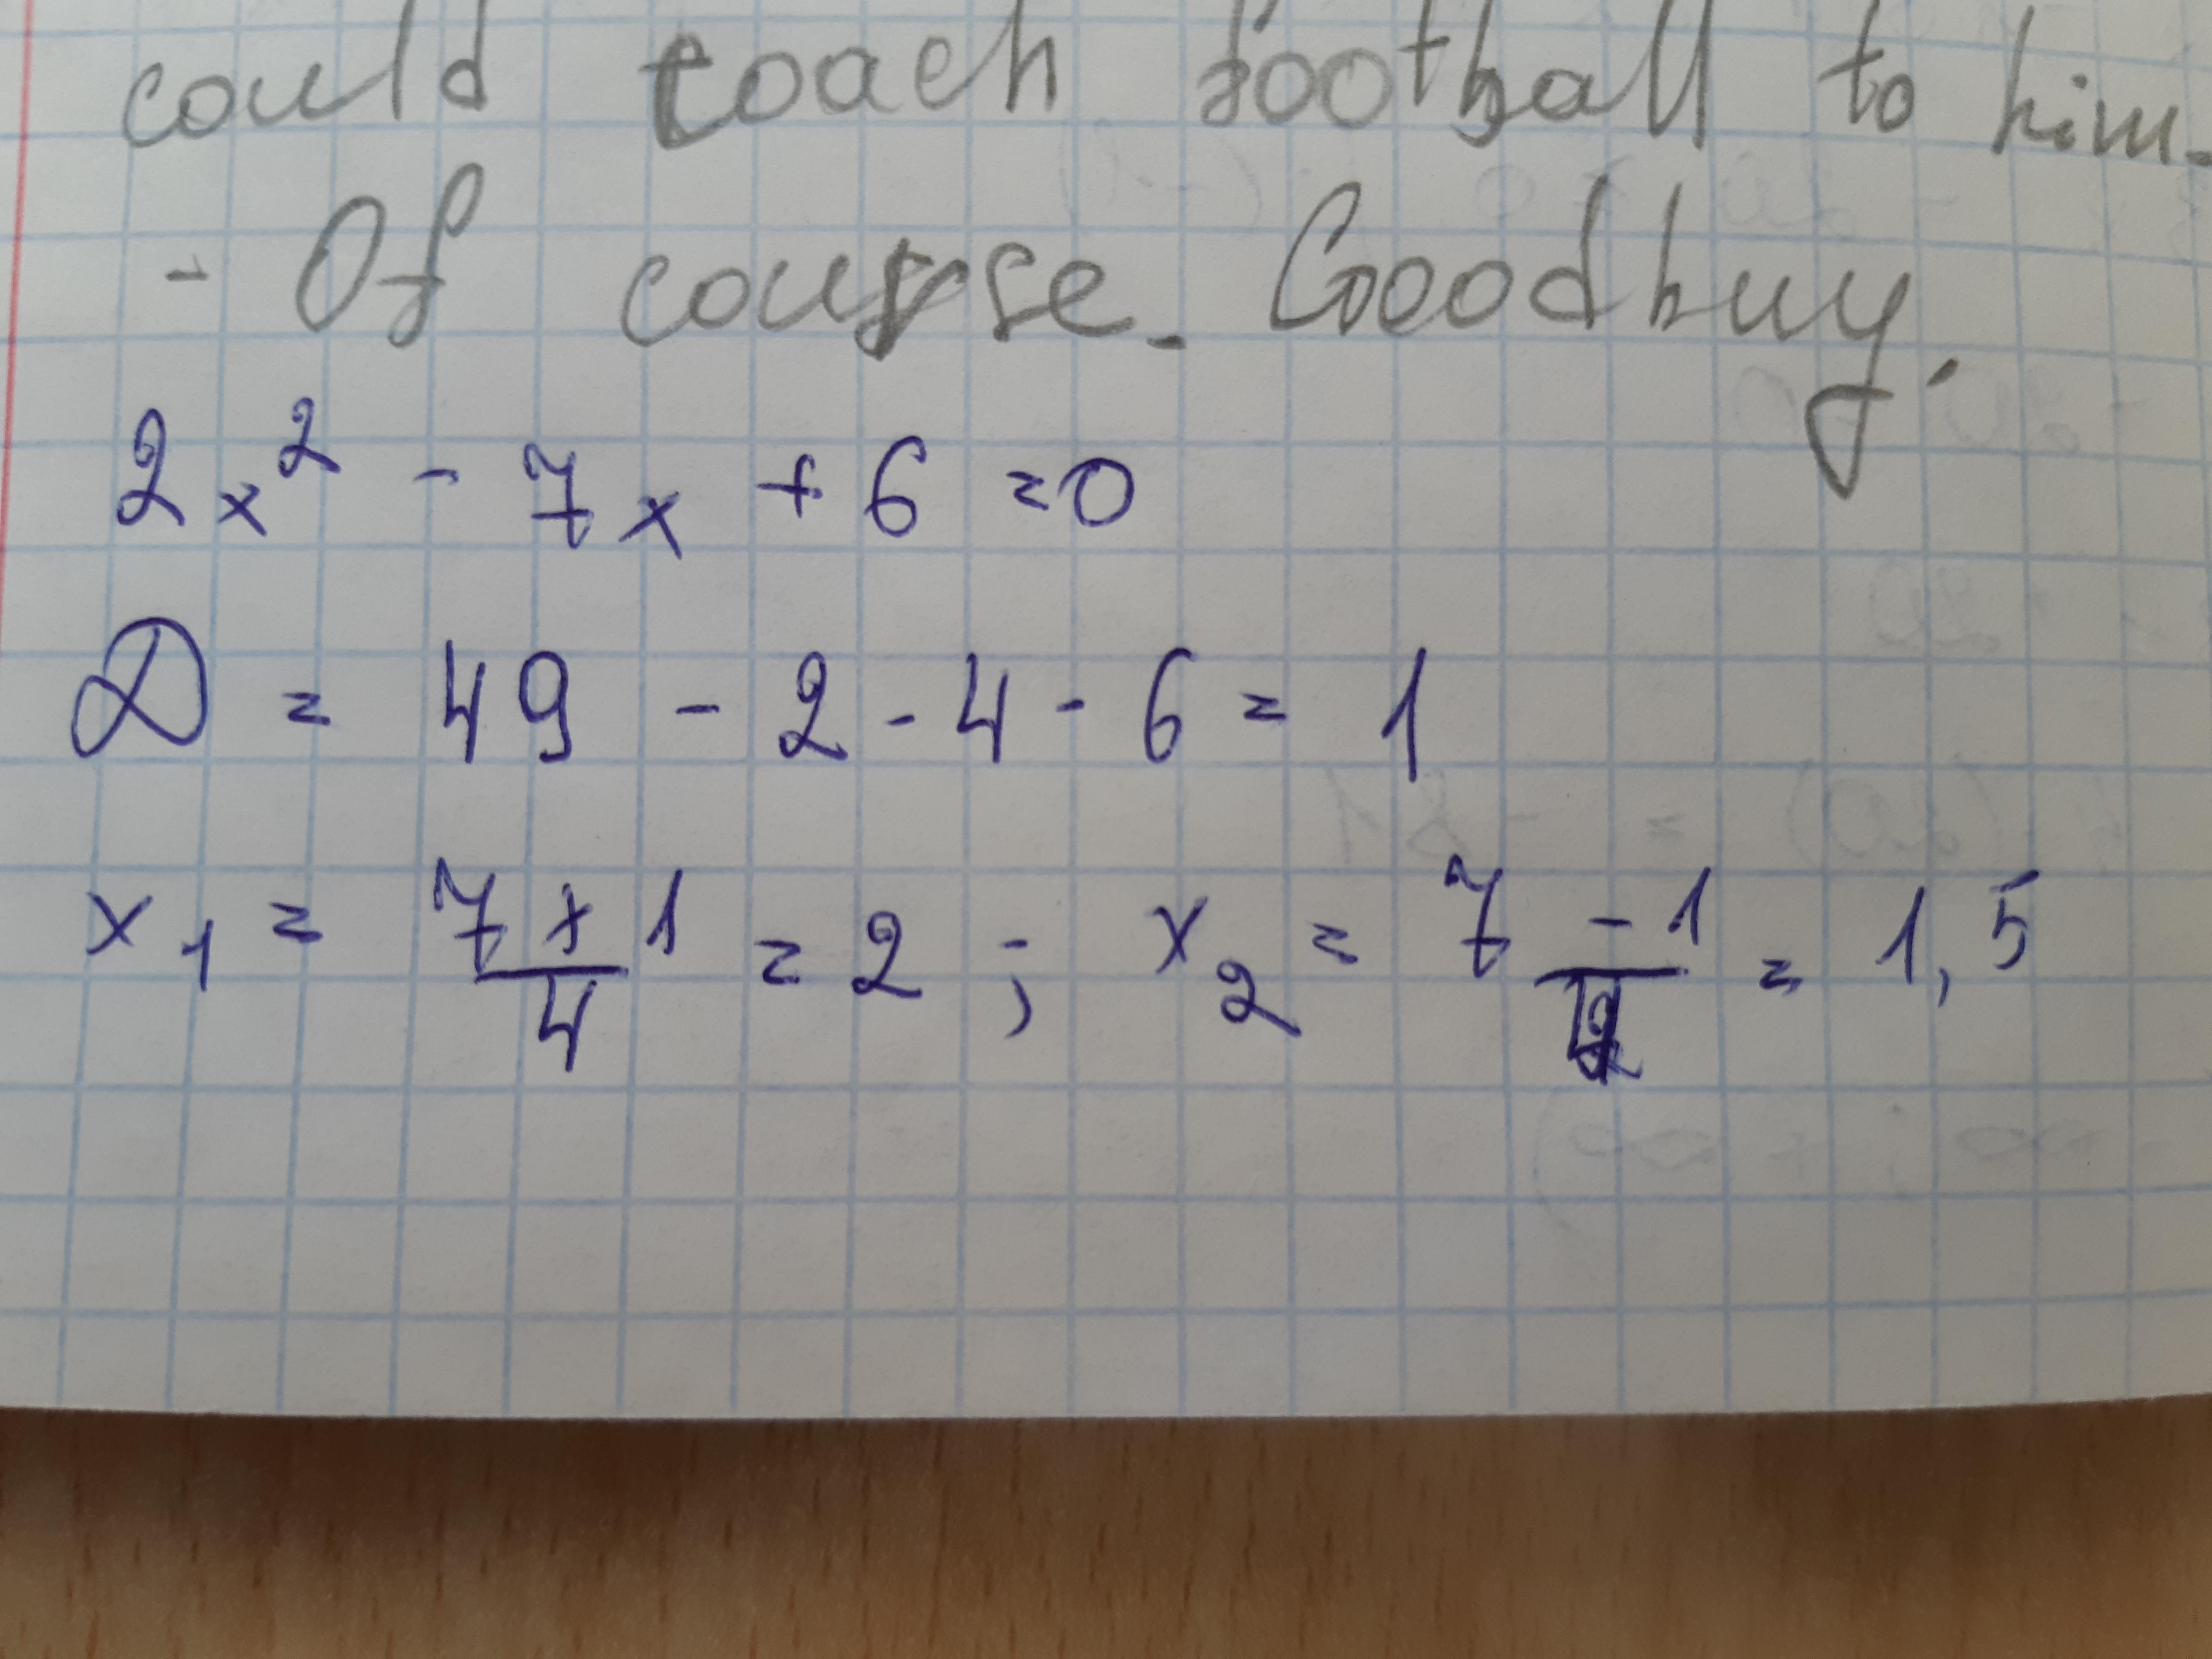 could coach football to him.
- Of course. Goodbuy.
2x² - 7x + 6 = 0
D = 49 - 2 - 4 - 6 = 1
x₁ = (7 + 1)/4 = 2 ; x₂ = (7 - 1)/4 = 1,5